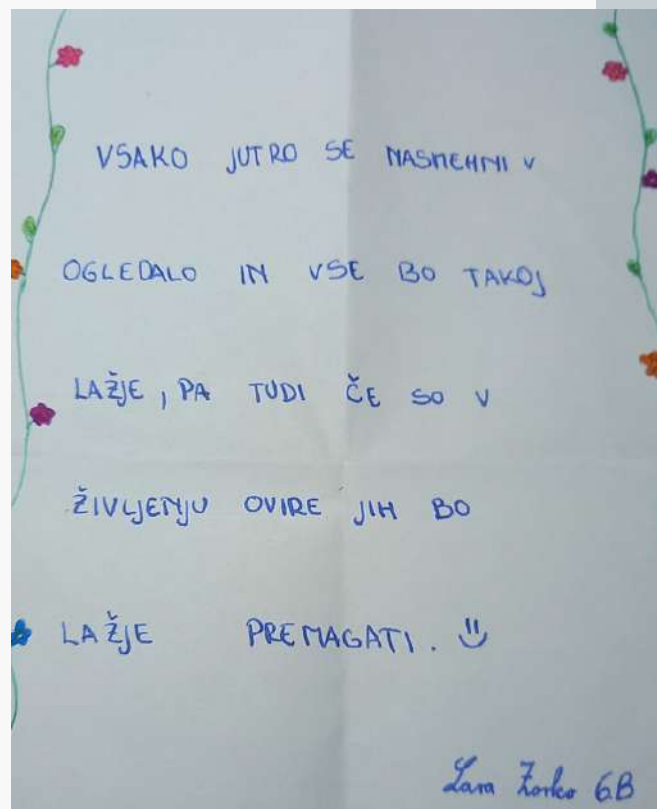 VSAKO JUTRO SE NASMEHNI V
OGLEDALO IN VSE BO TAKOJ
LAŽJE, PA TUDI ČE SO V
ŽIVLJENJU OVIRE JIH BO
LAŽJE PREMAGATI.
Lara Zorko 6.B